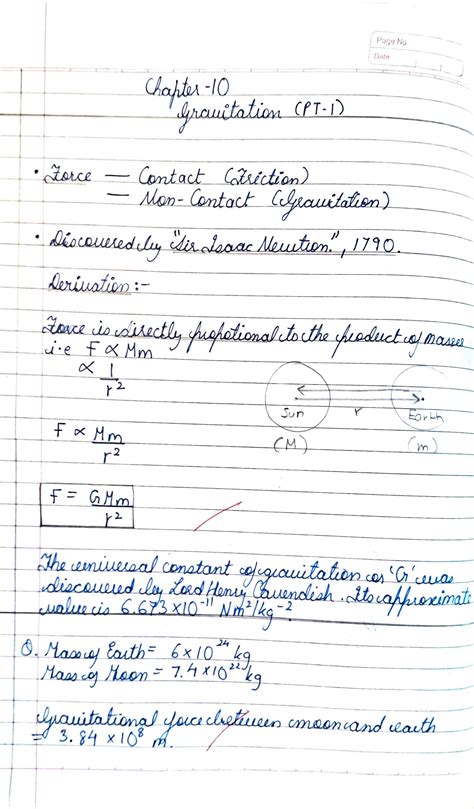 Page No.
Date
Chapter-10
Gravitation (PT-1)
• Force — Contact (Friction)
— Non-Contact (Gravitation)
• Discovered by "Sir Isaac Newton", 1790.
Derivation :-
Force is directly propotional to the product of masses
i.e F ∝ Mm
∝ 1/r²
Sun r Earth
(M) (m)
F ∝ Mm/r²
F = GMm/r²
The universal constant of gravitation or 'G' was
discovered by Lord Henry Cavendish. Its approximate
value is 6.673 × 10⁻¹¹ Nm²/kg⁻².
Q. Mass of Earth = 6 × 10²⁴ kg
Mass of Moon = 7.4 × 10²² kg
Gravitational force between moon and earth
= 3.84 × 10⁸ m.